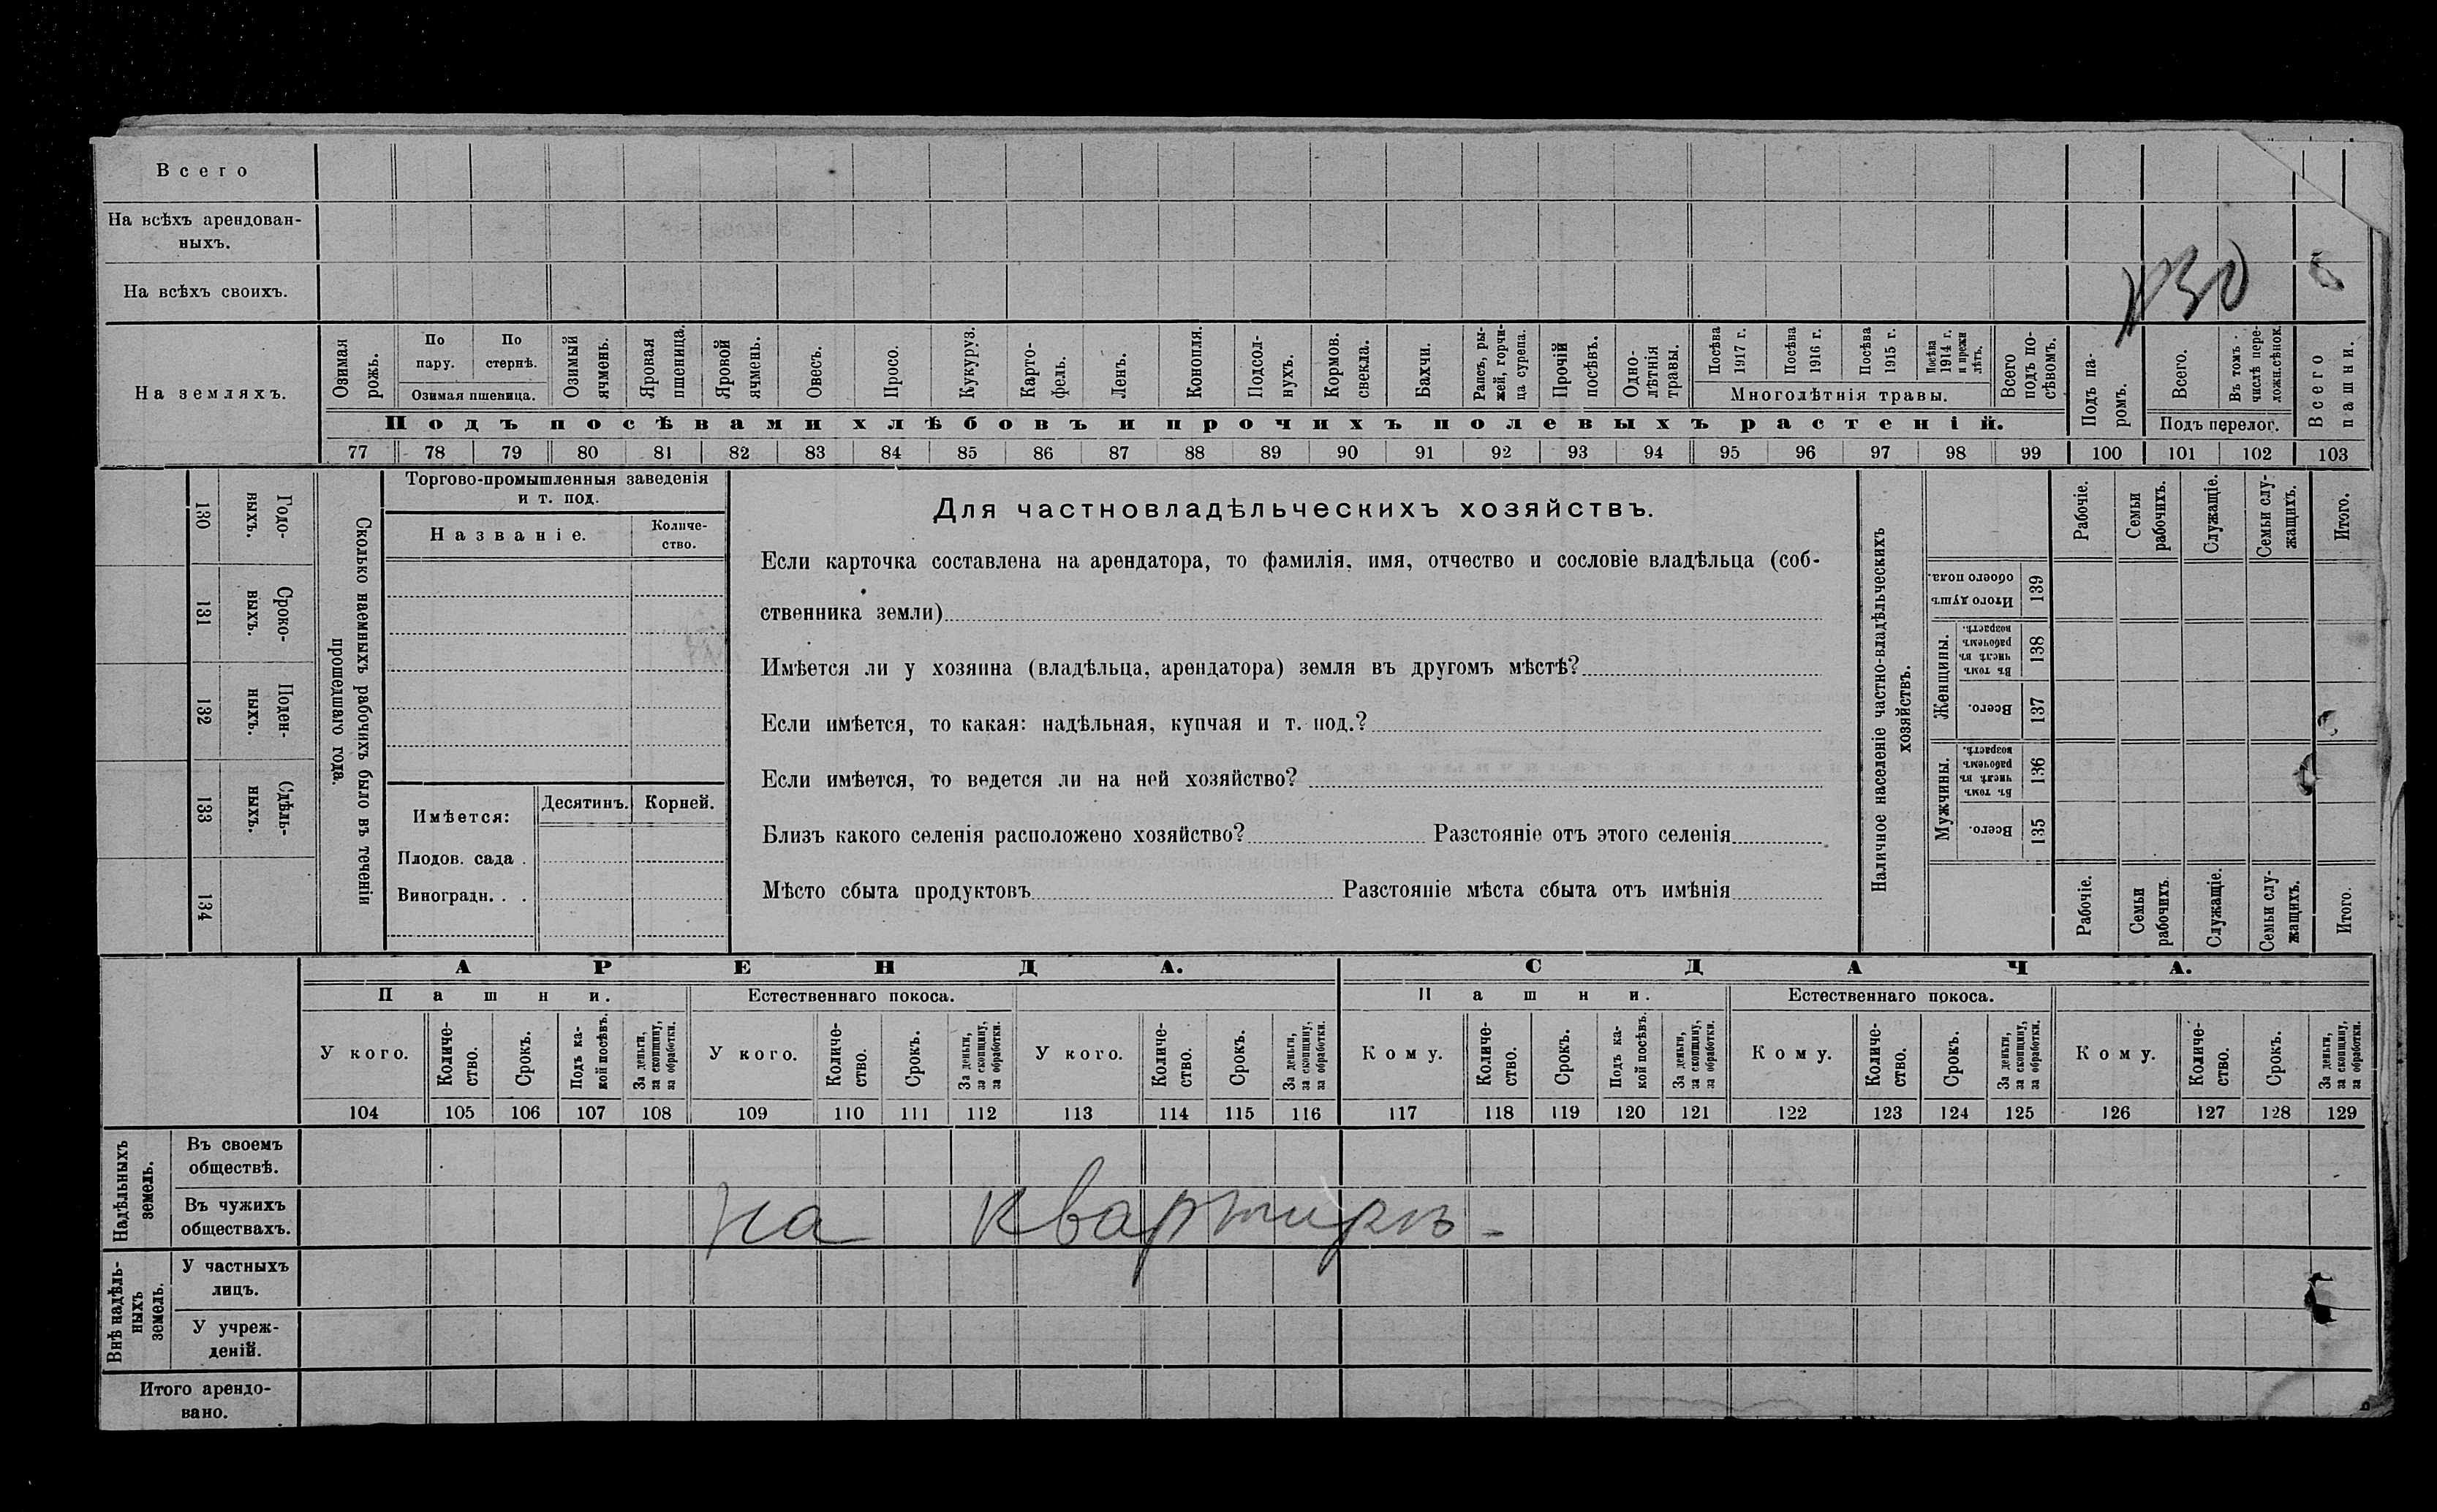 Всего
На всѣхъ арендован-
ныхъ.
На всѣхъ своихъ.
На земляхъ.
Озимая рожь.
По пару.
По стернѣ.
Озимая пшеница.
Озимый ячмень.
Яровая пшеница.
Яровой ячмень.
Овесъ.
Просо.
Кукуруз.
Карто-
фель.
Ленъ.
Конопля.
Подсол-
нухъ.
Кормов. свекла.
Бахчи.
Рапсъ, ры-
жей, горчи-
ца сурепа.
Прочій посѣвъ.
Одно-
лѣтнія травы.
Посѣва 1917 г.
Посѣва 1916 г.
Посѣва 1915 г.
Посѣва 1914 г. и прежн лѣтъ.
Многолѣтнія травы.
Всего подъ по-
сѣвомъ.
Подъ па-
ромъ.
Всего.
Въ томъ числѣ пере-
ложн.сѣнок.
Подъ перелог.
Всего пашни.
Подъ посѣвами хлѣбовъ и прочихъ полевыхъ растеній.
77 78 79 80 81 82 83 84 85 86 87 88 89 90 91 92 93 94 95 96 97 98 99 100 101 102 103
130 Годо-
выхъ.
131 Сроко-
выхъ.
132 Поден-
ныхъ.
133 Сдѣль-
ныхъ.
134
Сколько наемныхъ рабочихъ было въ теченіи
прошедшаго года.
Торгово-промышленныя заведенія
и т. под.
Названіе.
Количе-
ство.
Имѣется:
Десятинъ.
Корней.
Плодов. сада .
Виноградн. . .
Для частновладѣльческихъ хозяйствъ.
Если карточка составлена на арендатора, то фамилія, имя, отчество и сословіе владѣльца (соб-
ственника земли)
Имѣется ли у хозяина (владѣльца, арендатора) земля въ другомъ мѣстѣ?
Если имѣется, то какая: надѣльная, купчая и т. под.?
Если имѣется, то ведется ли на ней хозяйство?
Близъ какого селенія расположено хозяйство? Разстояніе отъ этого селенія
Мѣсто сбыта продуктовъ Разстояніе мѣста сбыта отъ имѣнія
Наличное населеніе частно-владѣльческихъ
хозяйствъ.
Рабочіе.
Семьи рабочихъ.
Служащіе.
Семьи слу-
жащихъ.
Итого.
Итого душъ обоего пола. 139
Женщины.
Въ томъ числѣ въ рабочемъ возрастѣ. 138
Всего. 137
Мужчины.
Въ томъ числѣ въ рабочемъ возрастѣ. 136
Всего. 135
Рабочіе.
Семьи рабочихъ.
Служащіе.
Семьи слу-
жащихъ.
Итого.
АРЕНДА. СДАЧА.
Пашни. Естественнаго покоса. Пашни. Естественнаго покоса.
У кого.
Количе-
ство.
Срокъ.
Подъ ка-
кой посѣвъ.
За деньги, за скопщину, за обработки.
У кого.
Количе-
ство.
Срокъ.
За деньги, за скопщину, за обработки.
У кого.
Количе-
ство.
Срокъ.
За деньги, за скопщину, за обработки.
Кому.
Количе-
ство.
Срокъ.
Подъ ка-
кой посѣвъ.
За деньги, за скопщину, за обработки.
Кому.
Количе-
ство.
Срокъ.
За деньги, за скопщину, за обработки.
Кому.
Количе-
ство.
Срокъ.
За деньги, за скопщину, за обработки.
104 105 106 107 108 109 110 111 112 113 114 115 116 117 118 119 120 121 122 123 124 125 126 127 128 129
Надѣльныхъ земель.
Въ своемъ
обществѣ.
Въ чужихъ
обществахъ.
на квартирѣ -
Внѣ надѣль-
ныхъ земель.
У частныхъ
лицъ.
У учреж-
деній.
Итого арендо-
вано.